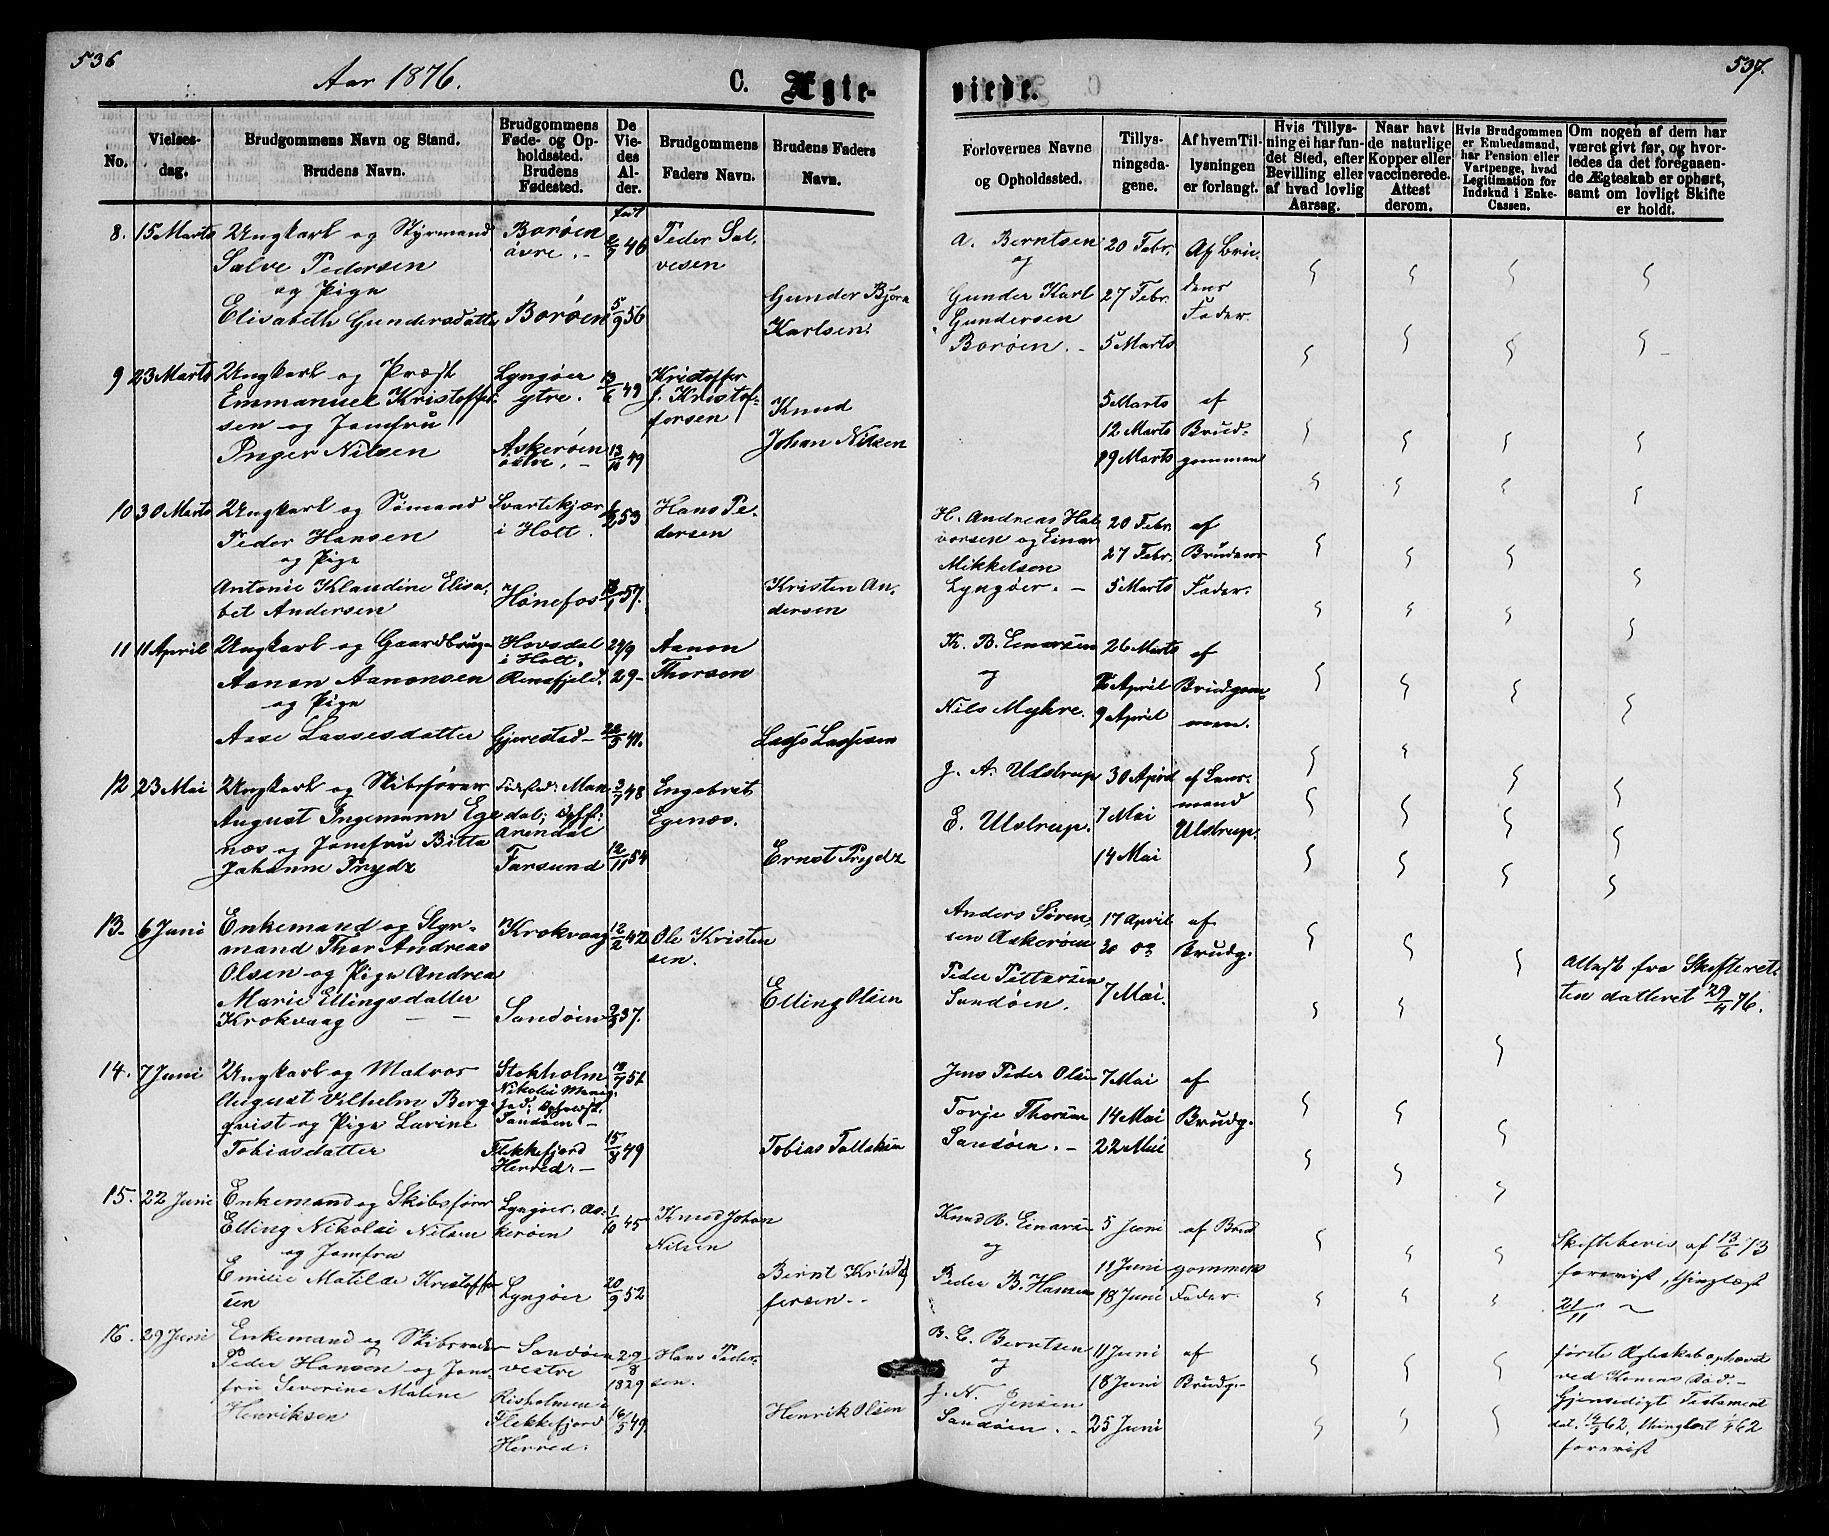 536
Aar 1876.
C. Ægte-
No.
Vielses-
dag.
Brudgommens Navn og Stand.
Brudens Navn.
Brudgommens
Føde- og Op-
holdssted.
Brudens
Fødested.
De
Vie-
des
Al-
der.
Brudgommens
Faders Navn.
Brudens Faders
Navn.
8. 15 Marts Ungkarl og Styrmand
Salve Pedersen
og Pige
Elisabeth Gundersdatter
Borøen
øvre. -
Borøen
født
46
5/9 56
Peder Sal-
vesen
Gunder Bjørn
Karlsen.
9 23 Marts Ungkarl og Præst
Emmanuel Kristoffer-
sen og Jomfru
Inger Nilsen
Lyngøer
ytre.
Askerøen
østre. -
49
13/10 49
Kristoffer
J. Kristof-
fersen
Knud
Johan Nilsen
10 30 Marts Ungkarl og Sømand
Peder Hansen
og Pige
Antonie Klaudine Elisa-
bet Andersen
Svartekjær
i Holt.
Hønefos
53
57.
Hans Pe-
dersen
Kristen An-
dersen
11 11 April Ungkarl og Gaardbruger
Aanon Aanonsen
og Pige
Aase Lassesdatter
Hovsdal
i Holt.
Gjerestad
27/9
29-
41.
Aanon
Thorsen
Lasse Lassesen
12 23 Mai Ungkarl og Skibsfører
August Ingemann Ege
næs og Jomfru Bitta
Johanne Prydz
Fødsted: Man-
dal; Ophst:
Arendal
Farsund
2/7 48
12/11 54
Engebret
Egenæs.
Ernst Prydz
13. 6 Juni Enkemand og Styr-
mand Thor Andreas
Olsen og Pige Andrea
Marie Ellingsdatter
Krokvaag
Krokvaag
Sandøen
12/2 42
37.
Ole Kristen
sen.
Elling Olsen
14. 7 Juni Ungkarl og Matros
August Vilhelm Berg-
qvist og Pige Lavine
Tobiasdatter
Stokholm
Nikolai Menig-
hed; Opholdst.
Sandøen. -
Flekkefjord
Herred. -
51
15/8 49
Tobias Tallaksen
15. 22 Juni Enkemand og Skibsfører
Elling Nikolai Nilsen
og Jomfru
Emilie Matilde Kristoffer
sen
Lyngøer. As-
kerøen
Lyngøer
1/6 45
20/9 52
Knud Johan
Nilsen
Bernt Kristof
fersen. -
16. 29 Juni Enkemand og Skibsreder
Peder Hansen og Jom-
fru Severine Maline
Henriksen
Sandøen
vestre
Risholmen i
Flekkefjord
Herred.
29/8
1829
16/5 49.
Hans Peder-
sen.
Henrik Olsen
537.
viede.
Forlovernes Navne
og Opholdssted.
Tillys-
ningsda-
gene.
Af hvem Til-
lysningen
er forlangt.
Hvis Tillys-
ning ei har fun-
det Sted, efter
Bevilling eller
af hvad lovlig
Aarsag.
Naar havt
de naturlige
Kopper eller
vaccinerede.
Attest
derom.
Hvis Brudgommen
er Embedsmand,
har Pension eller
Vartpenge, hvad
Legitimation for
Indskud i Enke-
Cassen.
Om nogen af dem har
været givt før, og hvor-
ledes da det foregaaen-
de Ægteskab er ophørt,
samt om lovligt Skifte
er holdt.
A. Berntsen
og
Gunder Karl
Gundersen
Borøen. -
20 Febr.
27 Febr.
5 Marts
Af Bru-
dens
Fader.
5 Marts
12 Marts
19 Marts
af
Brud-
gommen
H. Andreas Hal-
vorsen og Einar
Mikkelsen
Lyngøer. -
20 Febr.
27 Febr.
5 Marts
af
Brudens
Fader.
K. B. Einarsen
og
Nils Myhre.
26 Marts
April
9 April
af
Brudgom-
men.
J. A. Ulstrup
E. Ulstrup.
30 April
7 Mai
14 Mai
af Lens-
mand
Ulstrup.
Anders Søren-
sen Askerøen
Peder Pettersen
Sandøen.
17 April
30
7 Mai.
af
Brudg.
Attest fra Skifteret-
ten datteret 29/4 76.
Jens Peder Olsen
Torje Thorsen
Sandøen. -
7 Mai
14 Mai
22 Mai
af
Brudg.
Knud B. Einarsen
og
Peder B. Hansen
5 Juni
11 Juni
18 Juni
af Brud
gommens
Fader.
Skiftebevis af 13/6 73
forevist, thinglæst
21/11
B. C. Berntsen
og
J. N. Jensen
Sandøen. -
11 Juni
18 Juni
25 Juni
af
Brudg.-
første Ægteskab ophævet
ved Konens Død. -
Gjensedigt Testament
dat. 62, thinglæst 62
forevist